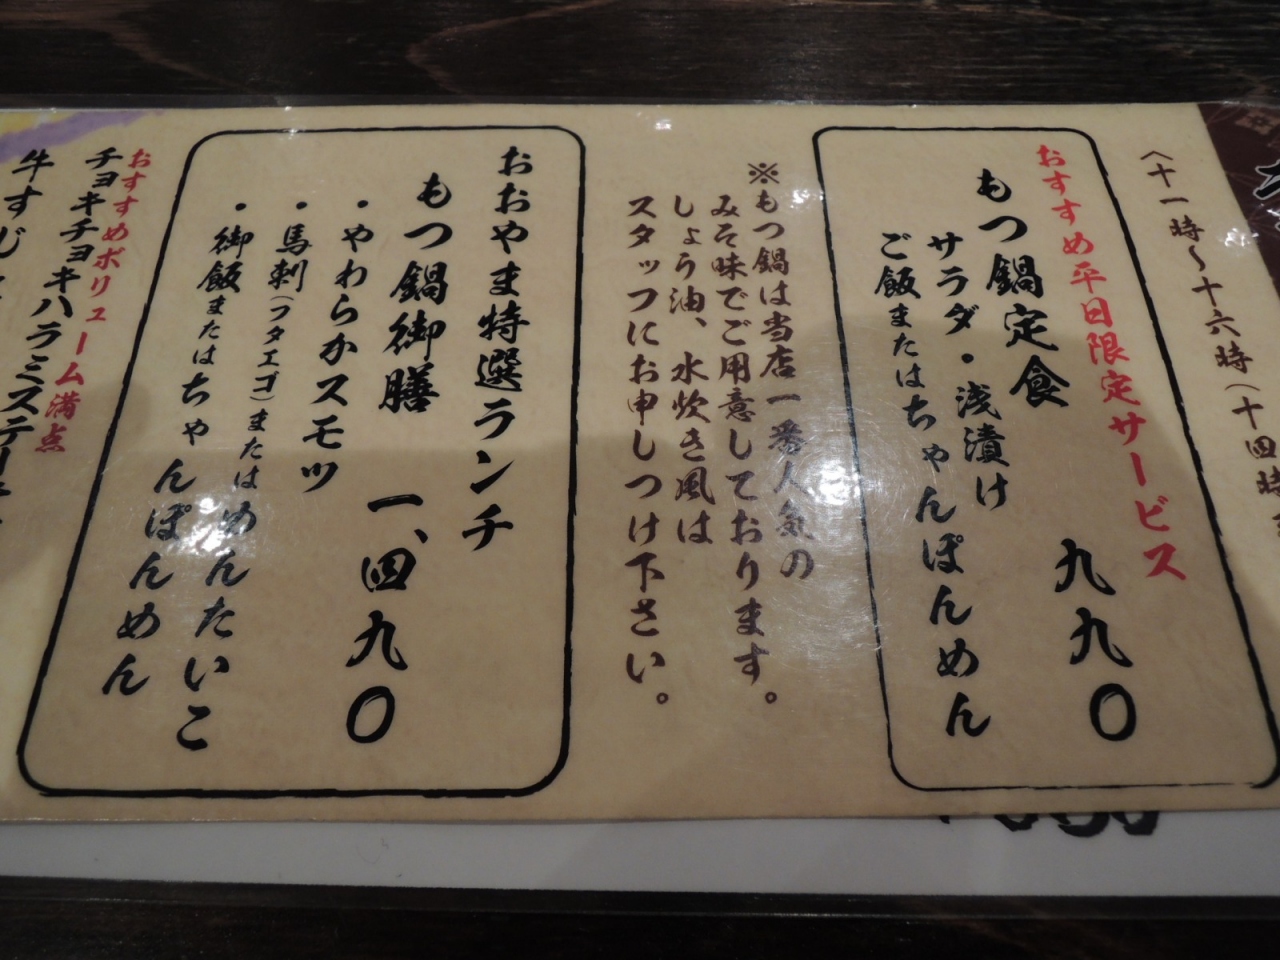 〈十一時〜十六時（十四時
おすすめ平日限定サービス
もつ鍋定食　九九〇
サラダ・浅漬け
ご飯またはちゃんぽんめん
※もつ鍋は当店一番人気の
みそ味でご用意しております。
しょう油、水炊き風は
スタッフにお申しつけ下さい。
おおやま特選ランチ
もつ鍋御膳　一、四九〇
・やわらかスモツ
・馬刺（フタエゴ）またはめんたいこ
・御飯またはちゃんぽんめん
おすすめボリューム満点
チョキチョキハラミステー
牛すじ